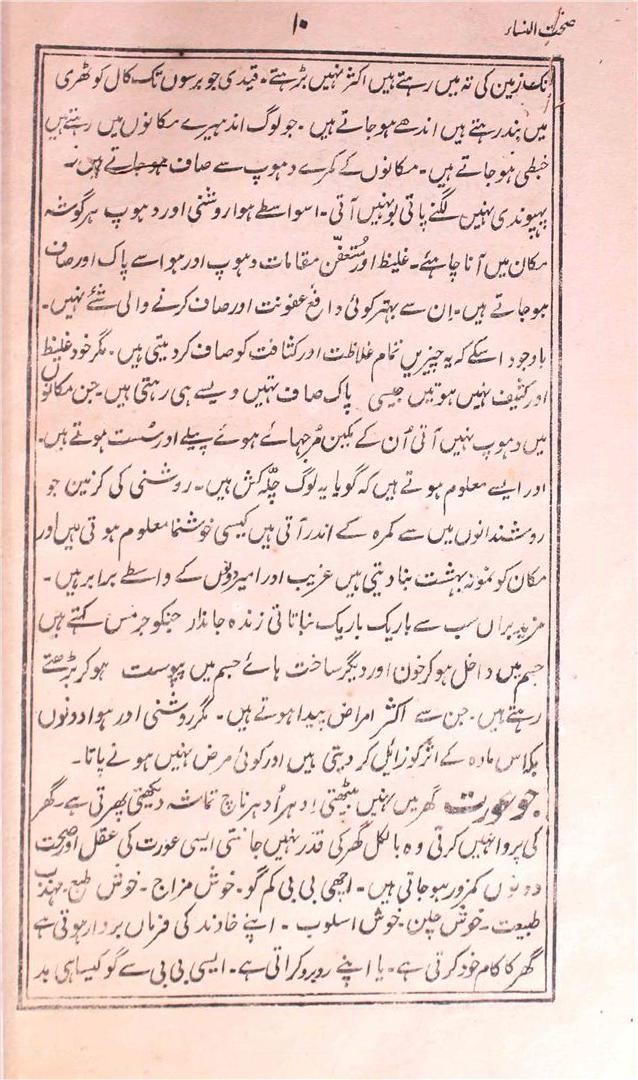 صحت النساء
۱۰
تک زمین کی تہ میں رہتے ہیں اکثر نہیں بڑہتے۔ قیدی جو برسوں تک کال کوٹھری
میں بند رہتے ہیں اندھے ہو جاتے ہیں۔ جو لوگ اندہیرے مکانوں میں رہتے ہیں
خبطی ہو جاتے ہیں۔ مکانوں کے کمرے دہوپ سے صاف ہو جاتے ہیں۔
پہپوندی نہیں لگنے پاتی بو نہیں آتی۔ اسواسطے ہوا روشنی اور دہوپ ہر گوشہ
مکان میں آنا چاہئے۔ غلیظ اور مُتعفّن مقامات دہوپ اور ہوا سے پاک اور صاف
ہو جاتے ہیں۔ اِن سے بہتر کوئی دافع عفونت اور صاف کرنے والی شئے نہیں۔
باوجود اسکے کہ یہ چیزیں تمام غلاظت اور کثافت کو صاف کر دیتی ہیں۔ مگر خود غلیظ
اور کثیف نہیں ہوتیں جیسی پاک صاف تہیں ویسے ہی رہتی ہیں۔ جن مکانوں
میں دہوپ نہیں آتی اُن کے مکین مُرجہائے ہوئے پیلے اور سُست ہوتے ہیں۔
اور ایسے معلوم ہوتے ہیں کہ گویا یہ لوگ چلّہ کش ہیں۔ روشنی کی کرنین جو
روشندانوں میں سے کمرہ کے اندر آتی ہیں کیسی خوشنما معلوم ہوتی ہیں اور
مکان کو نمونہ بہشت بنا دیتی ہیں غریب اور امیر دونوں کے واسطے برابر ہیں۔
مزید براں سب سے باریک باریک نباتاتی زندہ جاندار جنکو جرمس کہتے ہیں
جسم میں داخل ہو کر خون اور دیگر ساخت ہائے جسم میں پیوست ہو کر بڑھتے
رہتے ہیں۔ جن سے اکثر امراض پیدا ہوتے ہیں۔ مگر روشنی اور ہوا دونوں
ملکر اس مادہ کے اثر کو زایل کر دیتی ہیں اور کوئی مرض نہیں ہونے پاتا۔
جو عورت گھر میں نہیں بیٹھتی اِدہر اُدہر ناچ تماشہ دیکھتی پھرتی ہے۔ گھر
کی پروا نہیں کرتی وہ بالکل گھر کی قدر نہیں جانتی ایسی عورت کی عقل اور صحت
دونوں کمزور ہو جاتی ہیں۔ اچھی بی بی کم گو۔ خوش مزاج۔ خوش طبع۔ مہذب
طبیعت۔ خوش چلن۔ خوش اسلوب۔ اپنے خاوند کی فرماں بردار ہوتی ہے
گھر کا کام خود کرتی ہے۔ یا اپنے روبرو کراتی ہے۔ ایسی بی بی سے گو کیسا ہی بد